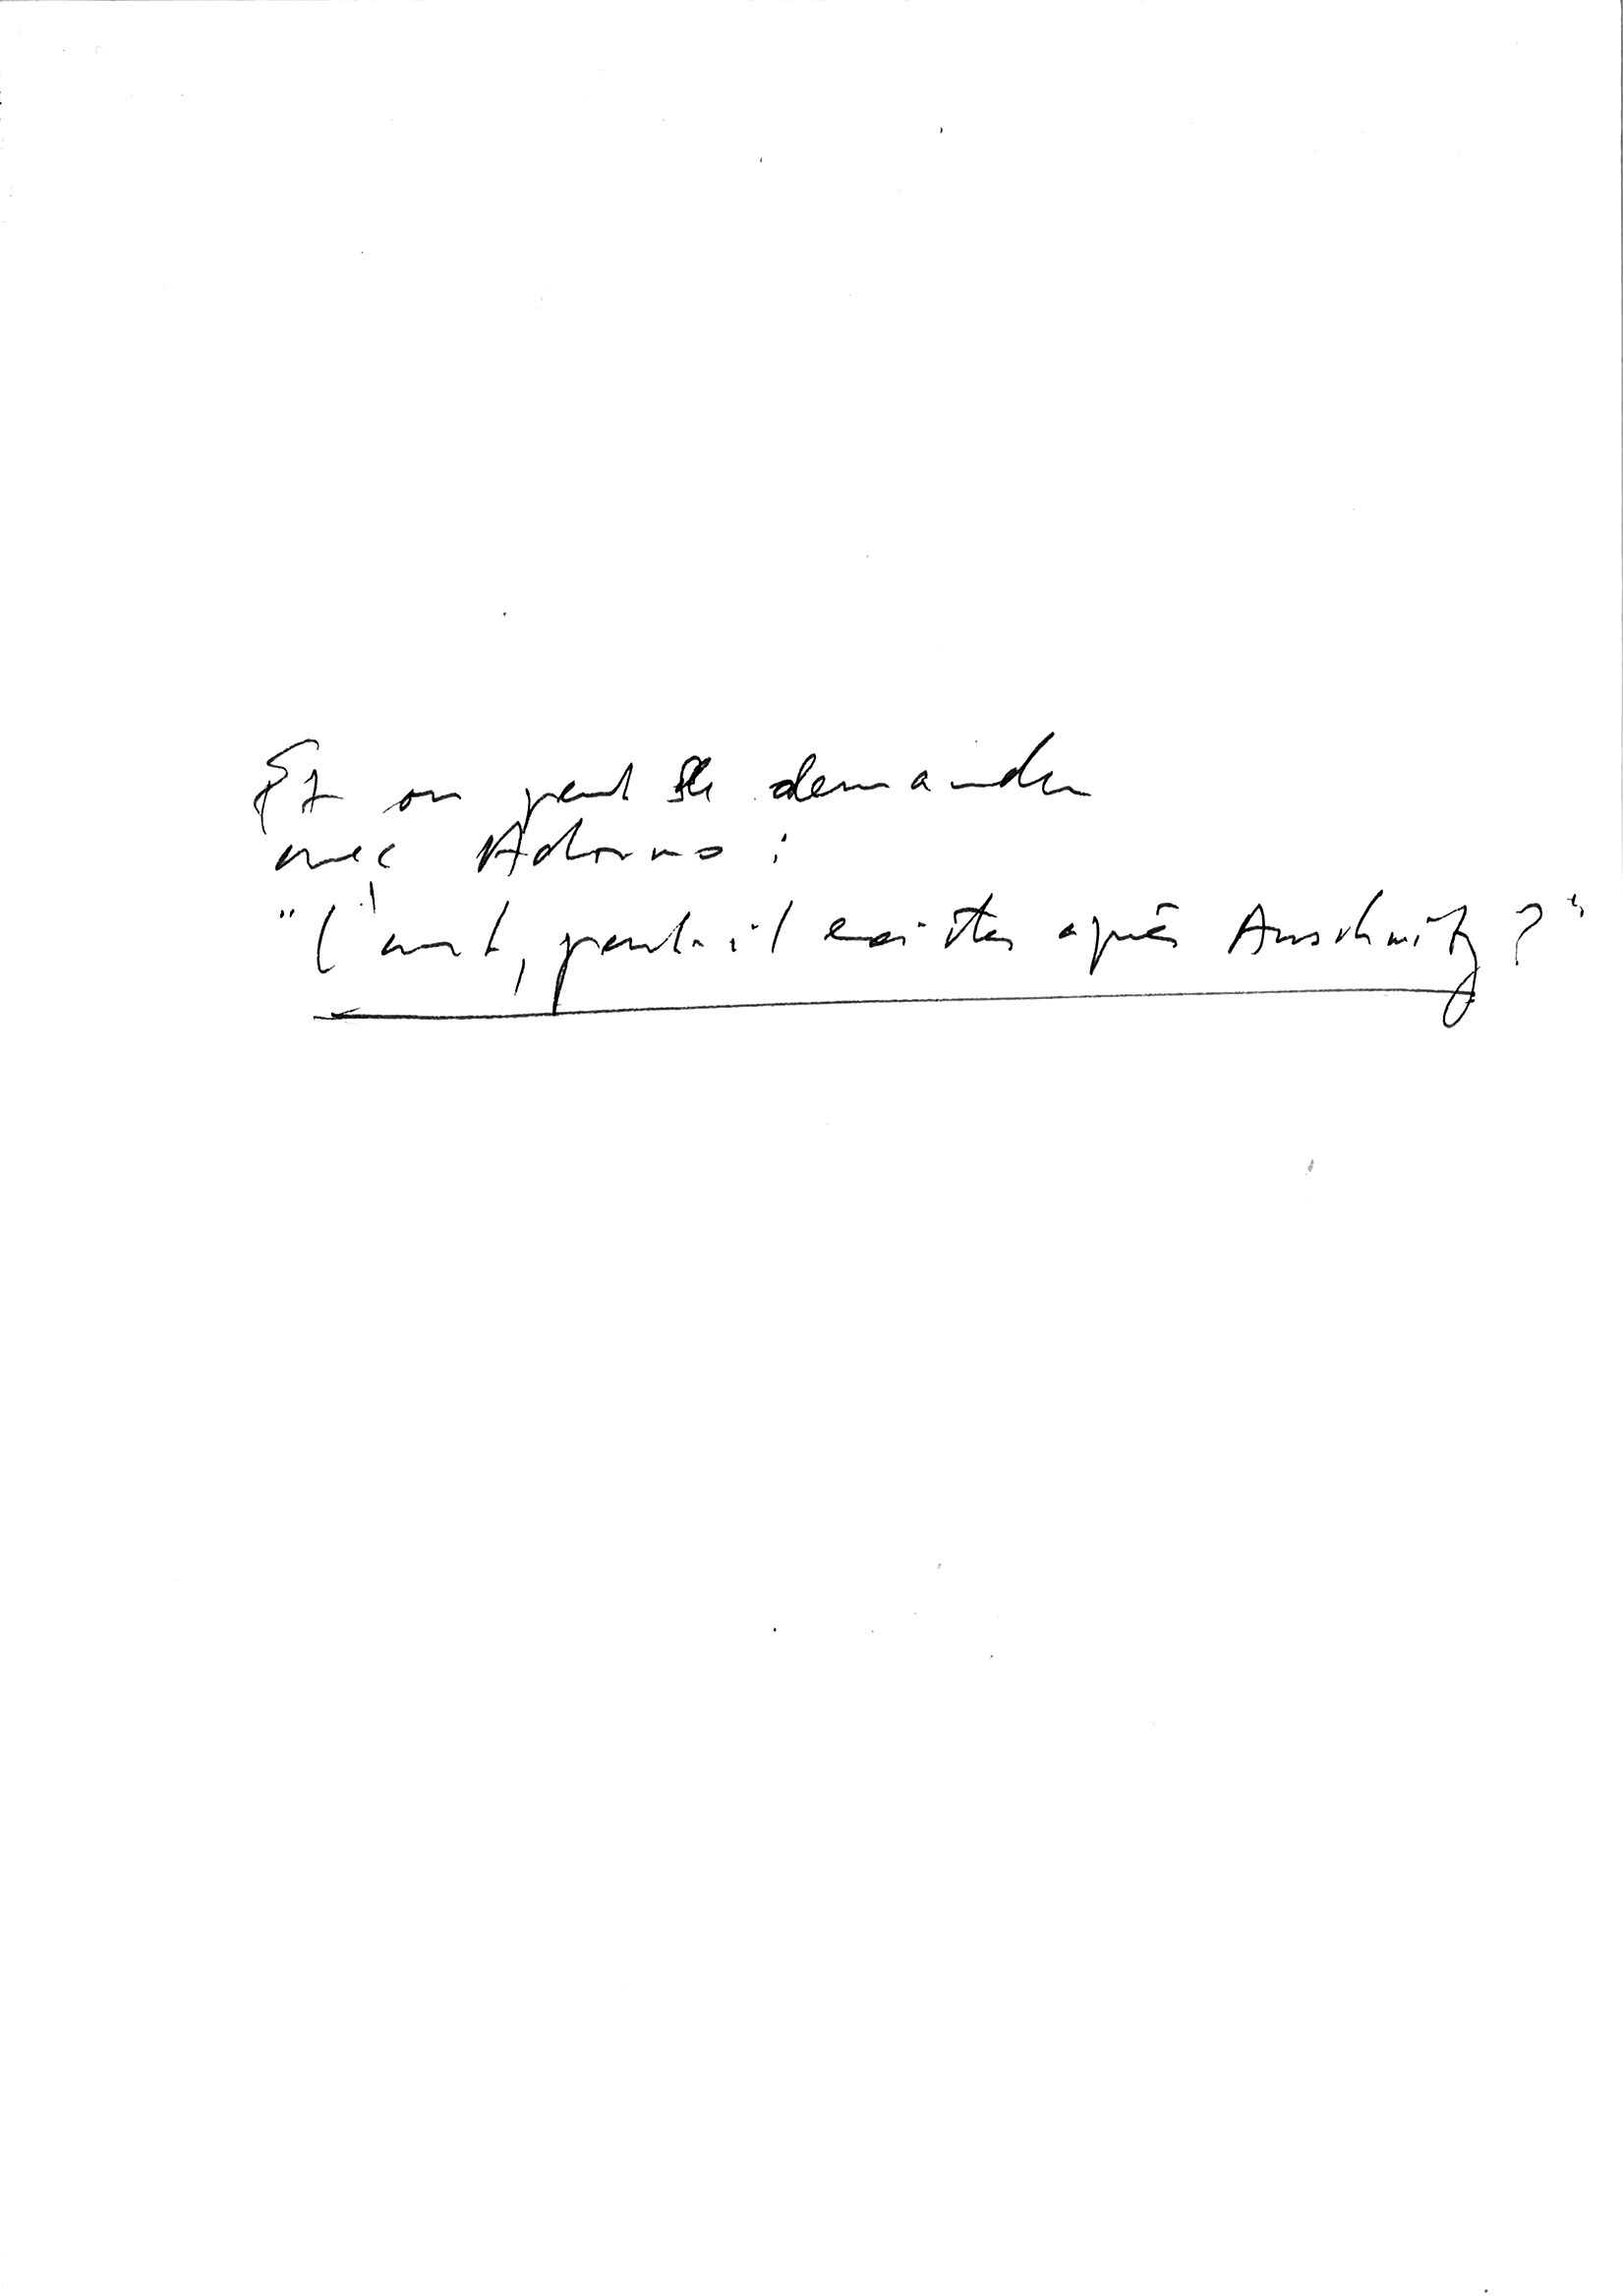 Et on peut se demander
avec Adorno :
"L'art, peut-il exister après Auschwitz ?"